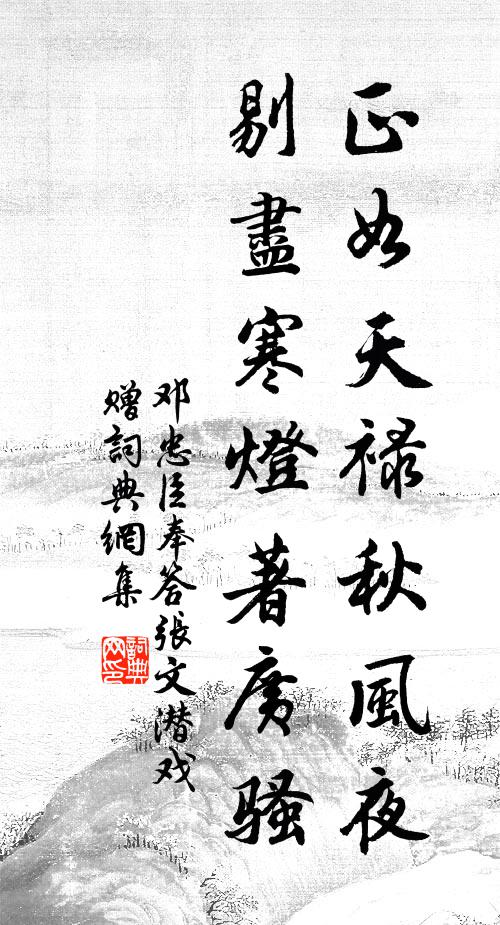 正如天禄秋風夜
剔盡寒燈著廣騷
邓忠臣奉答張文潜戏
贈詞典網集
詞典網印